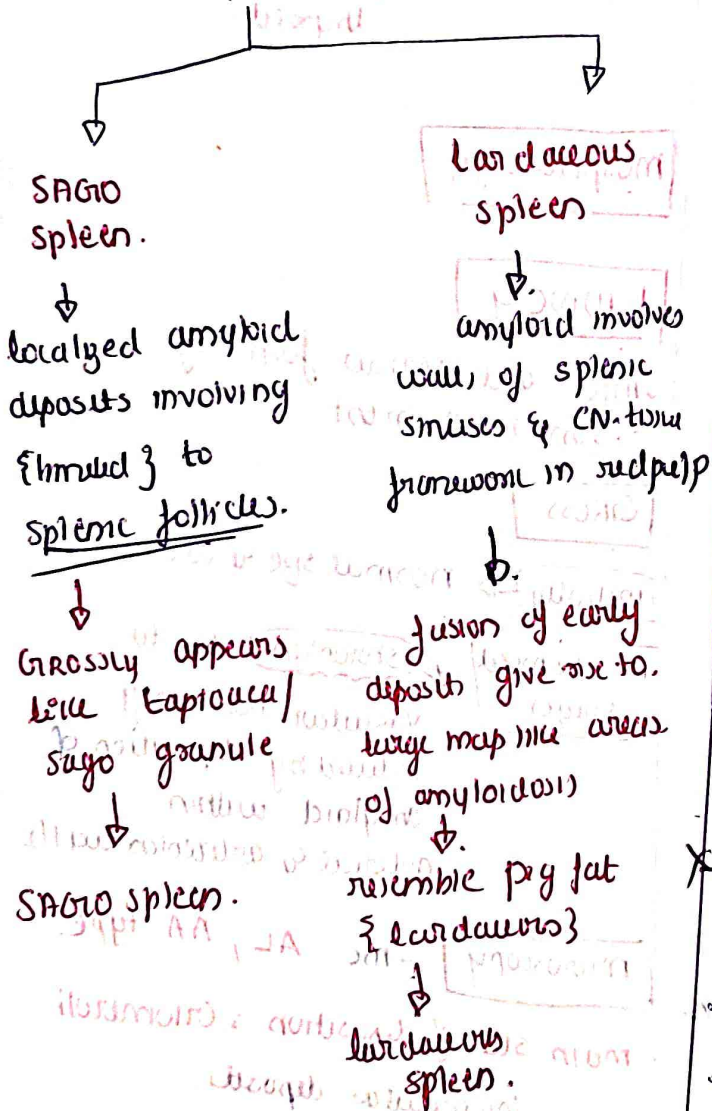 SAGO
spleen.
↓
localyed amyloid
deposits involving
{limited} to
splenic follicles.
↓
GROSSLY appears
like tapioaca/
sago granule
↓
SAGO spleen.
lardaceous
spleen
↓
amyloid involves
walls of splenic
sinuses & CN-tissue
framework in redpulp
↓
fusion of early
deposits give rise to.
large map like areas
of amyloidosis
↓
resemble pig fat
{lardaceous}
↓
lardaceous
spleen.